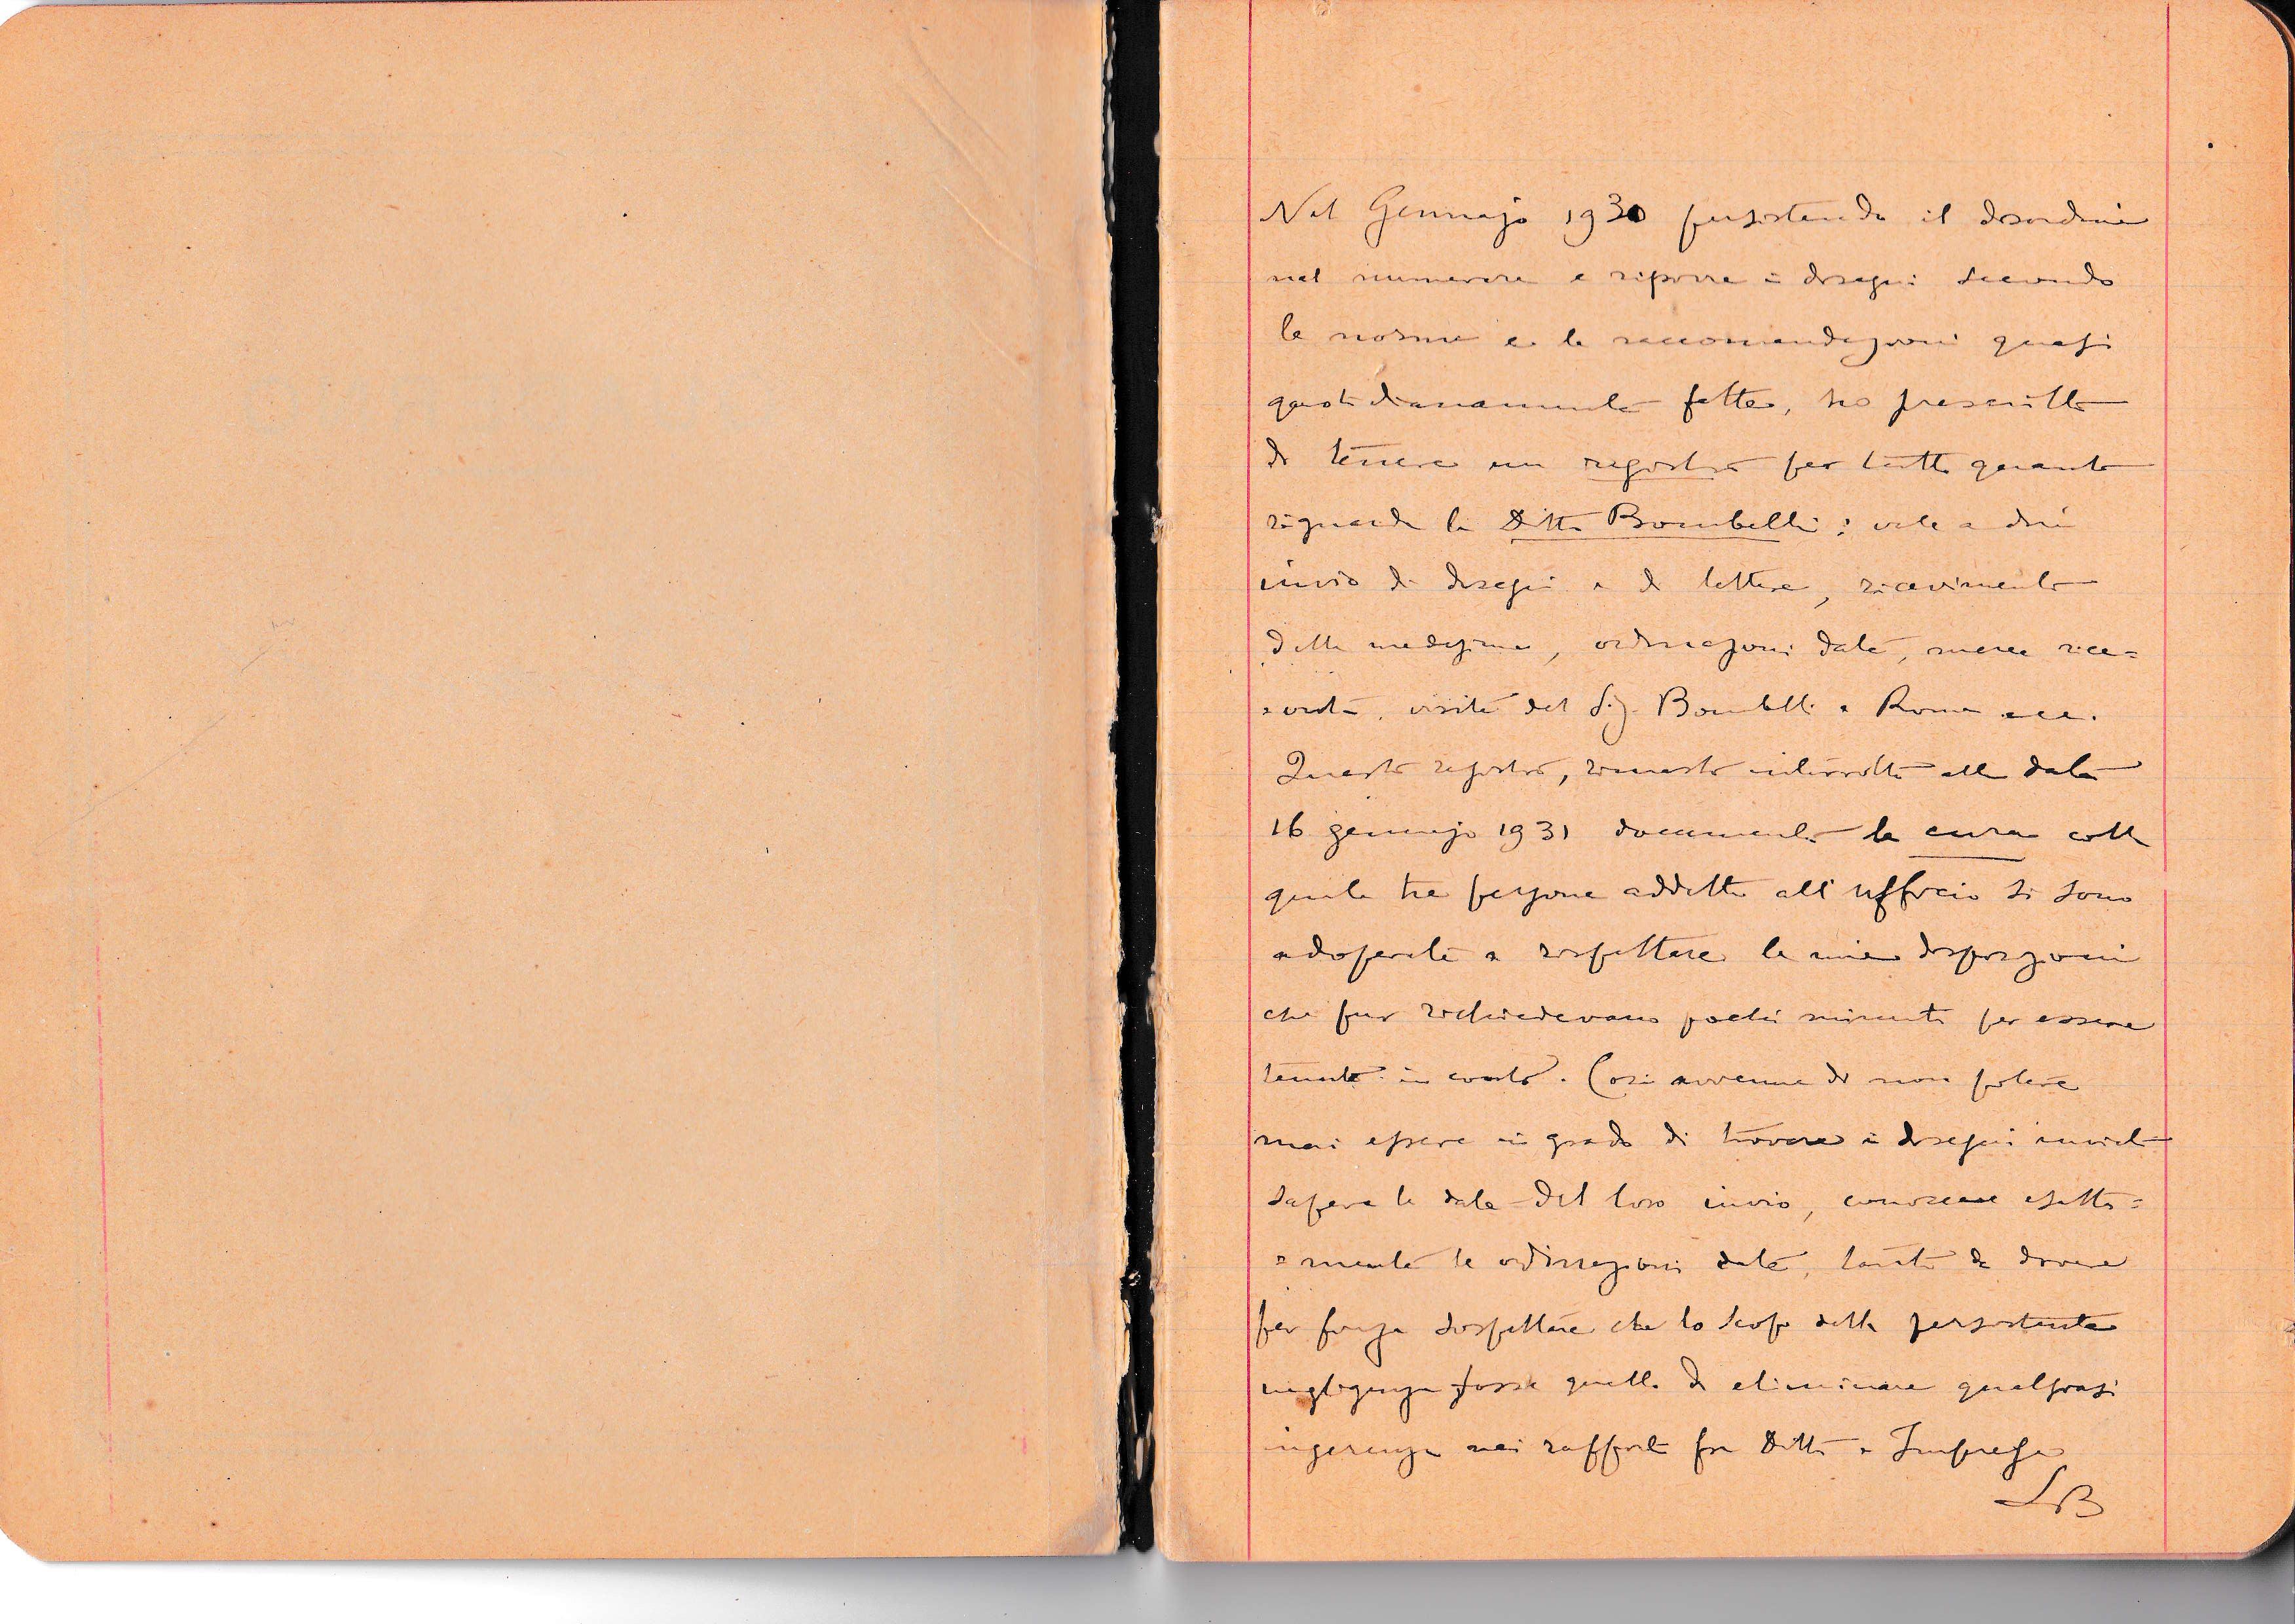 Nel Gennajo 1930 persistendo il disordine
nel numerare e riporre i disegni secondo
le norme e le raccomandazioni quasi
quotidianamente fatte, ho prescritto
di tenere un registro per tutto quanto
riguarda la Ditta Bombelli; vale a dire
invio di disegni e di lettere, ricevimento
delle medesime, ordinazioni date, merce rice=
=vuta, visite del Sig. Bombelli a Roma ecc.
Questo registro, rimasto interrotto alla data
16 gennajo 1931 documenta la cura colla
quale tre persone addette all'ufficio si sono
adoperate a rispettare le mie disposizioni
che pur richiedevano pochi minuti per essere
tenute in conto. Così avvenne di non potere
mai essere in grado di trovare i disegni inviati
sapere la data del loro invio, conoscere esatta=
=mente le ordinazioni date, tanto da dovere
per forza sospettare che lo scopo della persistente
negligenza fosse quello di eliminare qualsiasi
ingerenza nei rapporti fra Ditta e Impresa
LB